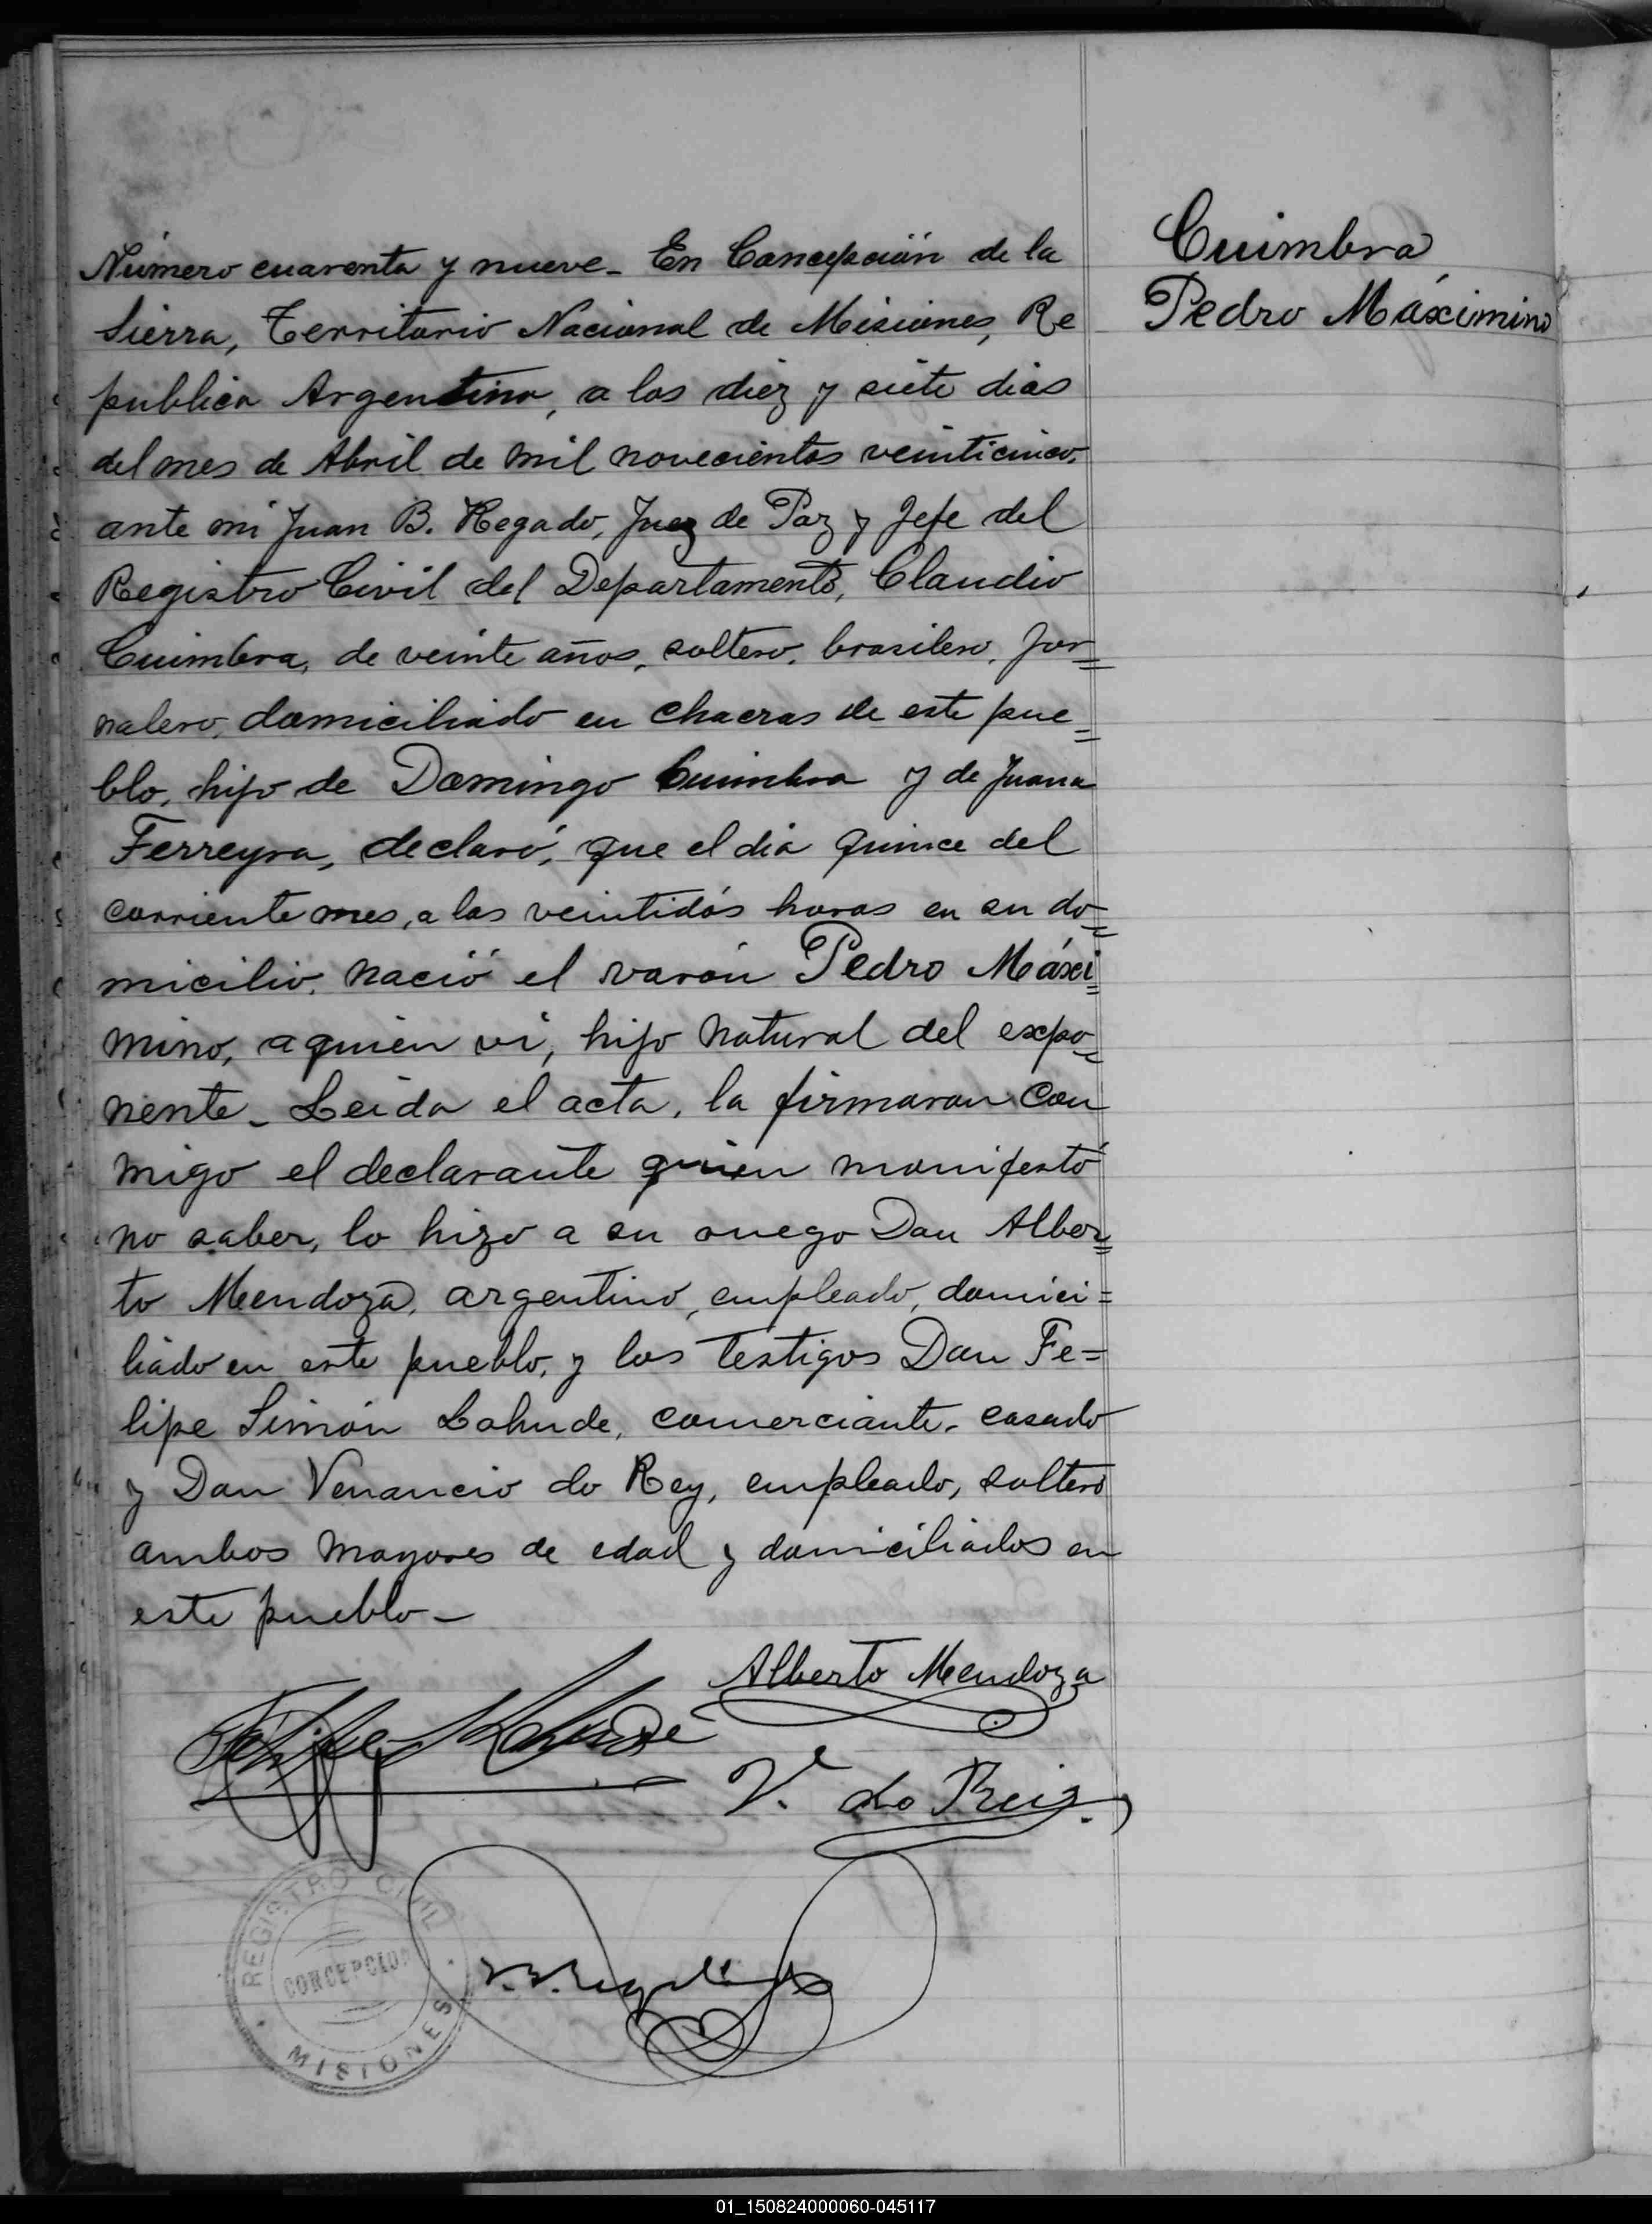 Cuimbra
Pedro Máximino
Número cuarenta y nueve_ En Concepción de la
Sierra, Territorio Nacional de Misiones, Re
publica Argentina, a los diez y siete dias
del mes de Abril de mil novecientos veinticinco,
ante mi Juan B. Regado, Juez de Paz y Jefe del
Registro Civil del Departamento, Claudio
Cuimbra, de veinte años, soltero, brasilero, jor=
nalero, domiciliado en chacras de este pue=
blo, hijo de Domingo Cuimbra y de Juana
Ferreyra, declaró, que el dia quince del
corriente mes, a las veintidós horas en su do=
micilio, nació el varón Pedro Máxi=
mino, a quien vi, hijo natural del expo=
nente_ Leida el acta, la firmaron con
migo el declarante quien manifestó
no saber, lo hizo a su ruego Don Alber=
to Mendoza, argentino, empleado, domici=
liado en este pueblo, y los testigos Don Fe=
lipe Simón Lahude, comerciante, casado
y Don Venancio do Rey, empleado, soltero
ambos mayores de edad y domiciliados en
este pueblo_
Alberto Mendoza
Felipe S Lahude
V. do Reis
REGISTRO CIVIL
CONCEPCION
MISIONES
01_150824000060-045117